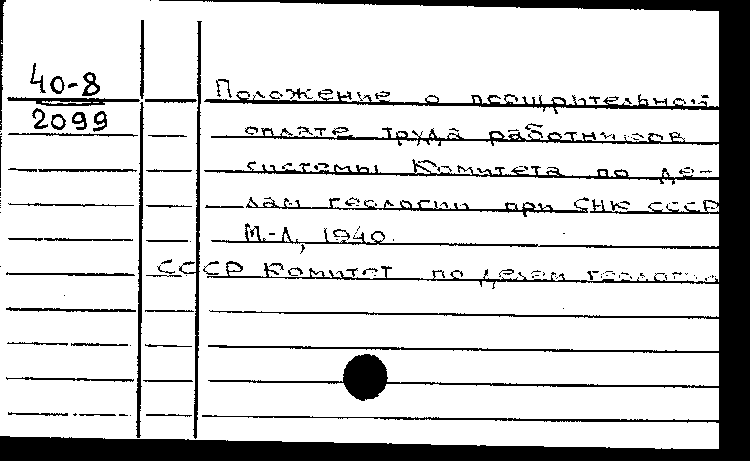 40-8
2099
Положение о поощрительной
оплате труда работников
системы Комитета по де-
лам геологии при СНК СССР
М.-Л., 1940.
СССР Комитет по делам геологии